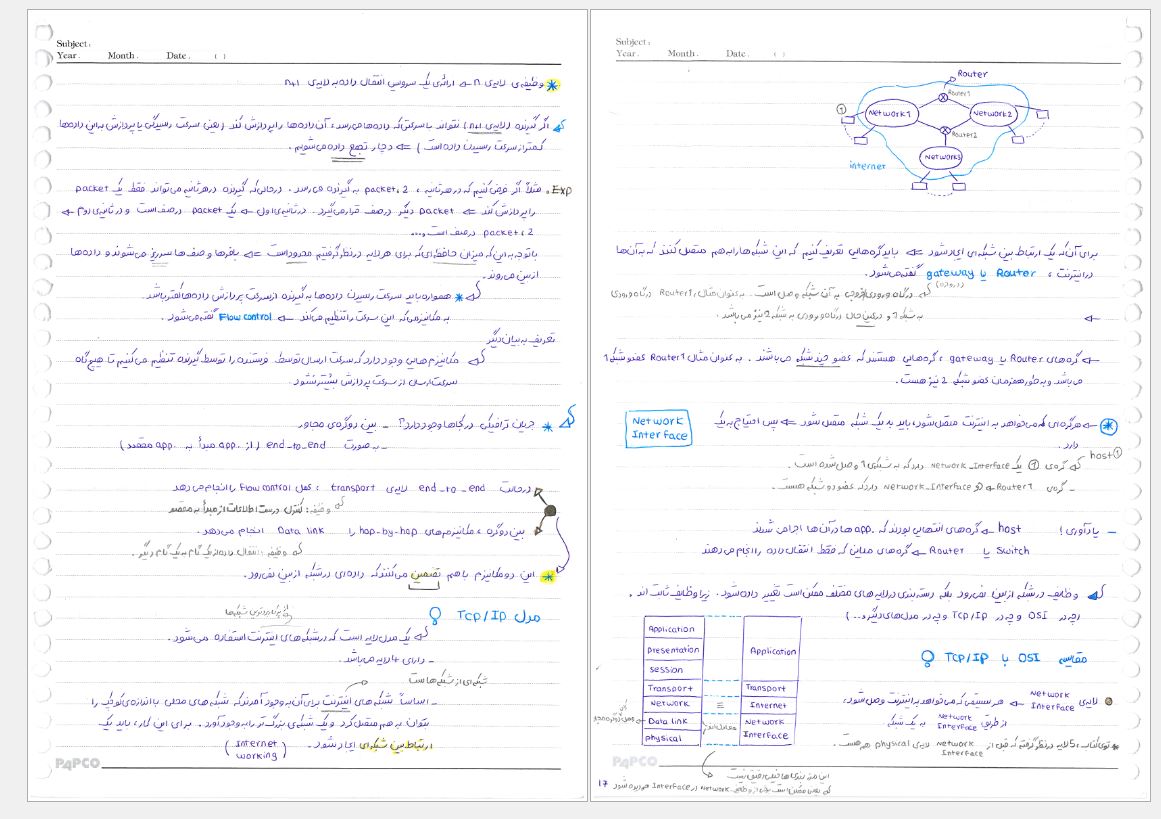 Subject:
Year. Month. Date. ( )
* وظیفه‌ی لایه‌ی n ← ارائه‌ی یک سرویس انتقال داده به لایه‌ی n+1
اگر گیرنده (لایه‌ی n+1) نتواند با سرعتی که داده‌ها می‌رسد، آن داده‌ها را پردازش کند (یعنی سرعت رسیدگی یا پردازش به این داده‌ها
کمتر از سرعت رسیدن داده است) ⇐ دچار تجمع داده می‌شویم.
Exp. مثلاً اگر فرض کنیم که در هر ثانیه، 2 packet به گیرنده می‌رسد. در حالی‌که گیرنده در هر ثانیه می‌تواند فقط یک packet
را پردازش کند ⇐ packet دیگر در صف قرار می‌گیرد. در ثانیه‌ی اول ← یک packet در صف است و در ثانیه‌ی دوم ←
2 packet در صف است و...
با توجه به این که میزان حافظه‌ای که برای هر لایه در نظر گرفتیم محدود است ⇐ بافرها و صف‌ها سرریز می‌شوند و داده‌ها
از بین می‌روند.
* همواره باید سرعت رسیدن داده‌ها به گیرنده از سرعت پردازش داده‌ها کمتر باشد.
به مکانیزمی که این سرعت را تنظیم می‌کند ← Flow control گفته می‌شود.
تعریف به بیان دیگر
مکانیزم‌هایی وجود دارد که سرعت ارسال توسط فرستنده را توسط گیرنده تنظیم می‌کنیم تا هیچ‌گاه
سرعت ارسال از سرعت پردازش بیشتر نشود.
* جریان ترافیکی در کجاها وجود دارد؟ - بین دو گره‌ی مجاور
- به صورت end-to-end (از app. مبدأ به app. مقصد)
در حالت end-to-end لایه‌ی transport: عمل Flow control را انجام می‌دهد
وظیفه: کنترل درست اطلاعات از مبدأ به مقصد
بین دو گره، مکانیزم‌های hop-by-hop را Data link انجام می‌دهد.
وظیفه: انتقال داده از یک گام به یک گام دیگر.
* این دو مکانیزم با هم تضمین می‌کنند که داده‌ای در شبکه از بین نرود.
مدل TCP/IP
یک مدل لایه است که در شبکه‌های اینترنت استفاده می‌شود.
- دارای 4 لایه می‌باشد.
شبکه‌ای از شبکه‌ها است
- اساساً شبکه‌های اینترنت برای آن به وجود آمدند که شبکه‌های محلی با اندازه‌ی کوچک را
بتوان به هم متصل کرد و یک شبکه‌ی بزرگ‌تر را به وجود آورد. برای این کار، باید یک
ارتباط بین شبکه‌ای ایجاد شود. (Internet working)
PAPCO
Subject:
Year. Month. Date. ( )
Router
Router1
①
Network1
Network2
Router2
Network3
internet
برای آن‌که یک ارتباط بین شبکه‌ای ایجاد شود ⇐ باید گره‌هایی تعریف کنیم که این شبکه‌ها را به هم متصل کنند که به آن‌ها
در اینترنت، Router یا gateway گفته می‌شود.
(دروازه)
درگاه ورودی/خروجی به آن شبکه وصل است. به عنوان مثال، Router1 درگاه ورودی
به شبکه 1 و در عین حال درگاه ورودی به شبکه 2 نیز می‌باشد.
← گره‌های Router یا gateway، گره‌هایی هستند که عضو چند شبکه می‌باشند. به عنوان مثال Router1 عضو شبکه 1
می‌باشد و به طور همزمان عضو شبکه 2 نیز هست.
* ← هر گره‌ای که می‌خواهد به اینترنت متصل شود، باید به یک شبکه متصل شود ⇐ پس احتیاج به یک
Network Interface
دارد.
host ①
که گره‌ی ① یک Network-Interface دارد که به شبکه‌ی 1 وصل شده است.
- گره‌ی Router1 ← 2 Network-Interface دارد که عضو دو شبکه هست.
- یادآوری! host ← گره‌های انتهایی بودند که app.ها در آن‌ها اجرا می‌شدند
Switch یا Router ← گره‌های میانی که فقط انتقال داده را انجام می‌دهند
وظایف در شبکه از بین نمی‌رود بلکه دسته‌بندی در لایه‌های مختلف ممکن است تغییر داده شود. زیرا وظایف ثابت‌اند.
(چه در OSI و چه در TCP/IP و چه در مدل‌های دیگر و...)
مقایسه‌ی OSI با TCP/IP
Application
Presentation
Session
Transport
Network
Data link
physical
≡
Application
Transport
Internet
Network Interface
لایه‌ی Network Interface ← هر سیستمی که می‌خواهد به اینترنت وصل شود،
از طریق Network Interface به یک شبکه
* توی کتاب، 5 لایه در نظر گرفته که قبل از Network Interface لایه‌ی physical هم هست.
این مرزبندی‌ها خیلی دقیق نیست
که یعنی ممکن است بعضی از وظایف Network در Interface هم دیده شود
PAPCO
17